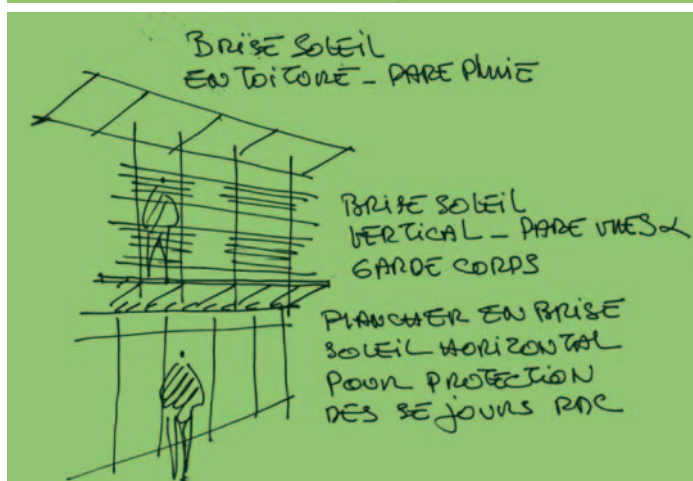 BRISE SOLEIL
EN TOITURE - PARE PLUIE
BRISE SOLEIL
VERTICAL - PARE VUES &
GARDE CORPS
PLANCHER EN BRISE
SOLEIL HORIZONTAL
POUR PROTECTION
DES SEJOURS RDC